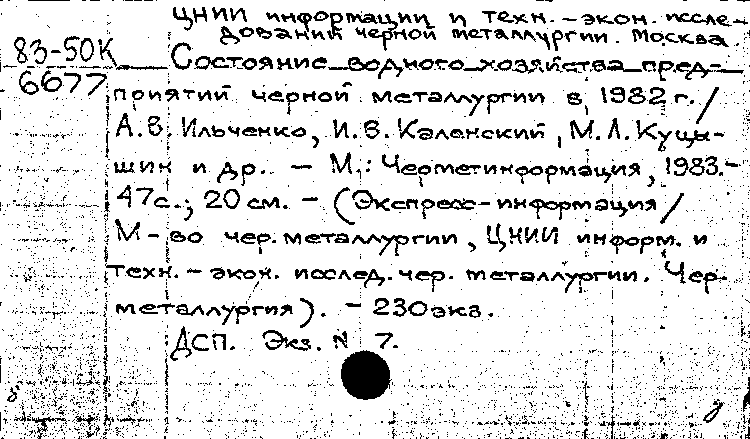 ЦНИИ информации и техн.-экон. иссле-
дований черной металлургии. Москва.
83-50К
6677
Состояние водного хозяйства пред-
приятий черной металлургии в 1982 г. /
А.В. Ильченко, И.В. Каленский, М.Л. Куцы-
шин и др. — М.: Черметинформация, 1983.-
47с.; 20 см. - (Экспресс-информация /
М-во чер. металлургии, ЦНИИ информ. и
техн.-экон. исслед. чер. металлургии. Чер.
металлургия). - 230 экз.
ДСП. Экз. N 7.